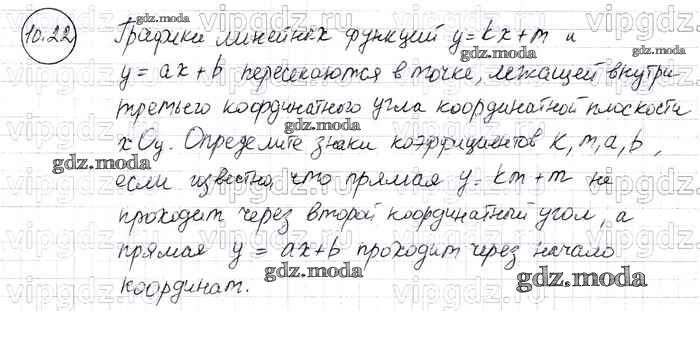 10.22 Графики линейных функций y=kx+m и
y=ax+b пересекаются в точке, лежащей внутри
третьего координатного угла координатной плоскости
xOy. Определите знаки коэффициентов k,m,a,b,
если известно, что прямая y=km+m не
проходит через второй координатный угол, а
прямая y=ax+b проходит через начало
координат.
gdz.moda
gdz.moda
gdz.moda
gdz.moda
gdz.moda
gdz.moda
gdz.moda
gdz.moda
gdz.moda